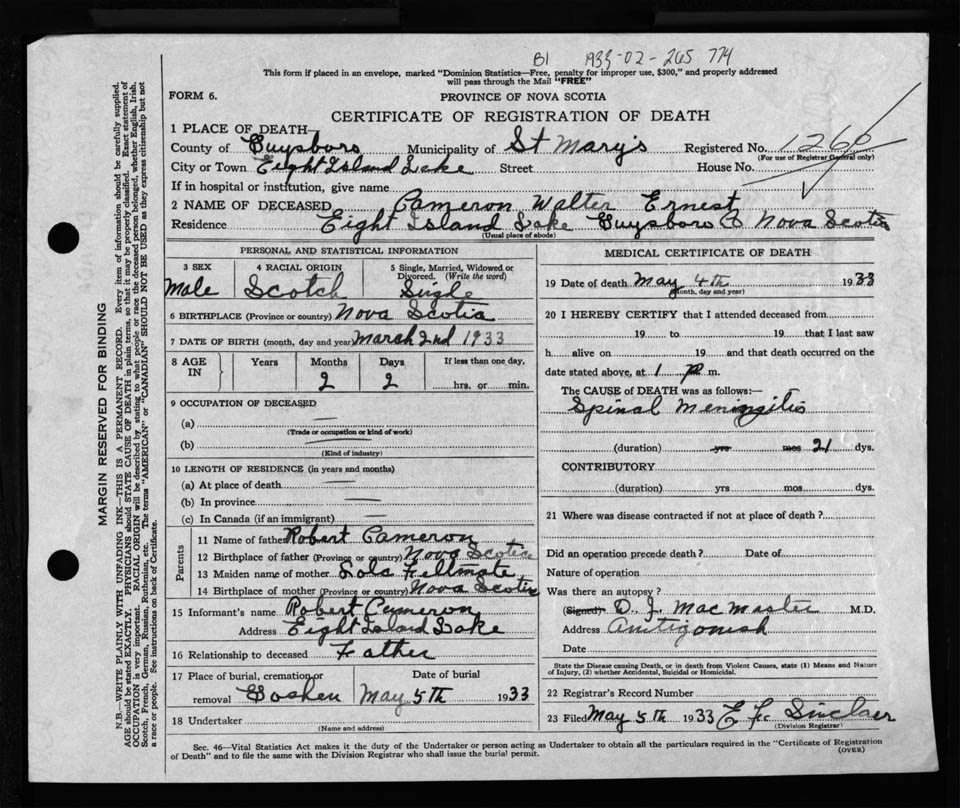 B1 1933-02-265 774
This form if placed in an envelope, marked "Dominion Statistics—Free, penalty for improper use, $300," and properly addressed
will pass through the Mail "FREE"
FORM 6.
PROVINCE OF NOVA SCOTIA
CERTIFICATE OF REGISTRATION OF DEATH
1 PLACE OF DEATH
County of Guysboro Municipality of St Mary's Registered No. 1260
(For use of Registrar General only)
City or Town Eight Island Lake Street House No.
If in hospital or institution, give name
2 NAME OF DECEASED Cameron Walter Ernest
Residence Eight Island Lake Guysboro Co Nova Scotia
(Usual place of abode)
PERSONAL AND STATISTICAL INFORMATION
3 SEX 4 RACIAL ORIGIN 5 Single, Married, Widowed or
Divorced. (Write the word)
Male Scotch Single
6 BIRTHPLACE (Province or country) Nova Scotia
7 DATE OF BIRTH (month, day and year) March 2nd 1933
8 AGE IN Years Months Days If less than one day,
2 2 hrs. or min.
9 OCCUPATION OF DECEASED
(a) —
(Trade or occupation or kind of work)
(b) —
(Kind of industry)
10 LENGTH OF RESIDENCE (in years and months)
(a) At place of death —
(b) In province —
(c) In Canada (if an immigrant) —
Parents
11 Name of father Robert Cameron
12 Birthplace of father (Province or country) Nova Scotia
13 Maiden name of mother Lola Fillmate
14 Birthplace of mother (Province or country) Nova Scotia
15 Informant's name Robert Cameron
Address Eight Island Lake
16 Relationship to deceased Father
17 Place of burial, cremation or Date of burial
removal Goshen May 5th 1933
18 Undertaker
(Name and address)
MEDICAL CERTIFICATE OF DEATH
19 Date of death May 4th 1933
(Month, day and year)
20 I HEREBY CERTIFY that I attended deceased from
19 to 19 that I last saw
h alive on 19 and that death occurred on the
date stated above, at 1 p m.
The CAUSE of DEATH was as follows:—
Spinal Meningitis
(duration) yrs mos 21 dys.
CONTRIBUTORY
(duration) yrs mos dys.
21 Where was disease contracted if not at place of death?
Did an operation precede death? Date of
Nature of operation
Was there an autopsy?
(Signed) D. J. MacMaster M.D.
Address Antigonish
Date
State the Disease causing Death, or in death from Violent Causes, state (1) Means and Nature
of Injury, (2) whether Accidental, Suicidal or Homicidal.
22 Registrar's Record Number
23 Filed May 5th 1933 E Fc Sinclair
(Division Registrar)
Sec. 46—Vital Statistics Act makes it the duty of the Undertaker or person acting as Undertaker to obtain all the particulars required in the "Certificate of Registration
of Death" and to file the same with the Division Registrar who shall issue the burial permit.
(OVER)
MARGIN RESERVED FOR BINDING
N.B.—WRITE PLAINLY WITH UNFADING INK—THIS IS A PERMANENT RECORD. Every item of information should be carefully supplied.
AGE should be stated EXACTLY. PHYSICIANS should STATE CAUSE OF DEATH in plain terms, so that it may be properly classified. Exact statement of
OCCUPATION is very important. RACIAL ORIGIN will be described by stating to what people or race the deceased person belonged, whether English, Irish,
Scotch, French, German, Russian, Ruthenian, etc. The terms "AMERICAN" or "CANADIAN" SHOULD NOT BE USED as they express citizenship but not
a race or people. See instructions on back of Certificate.